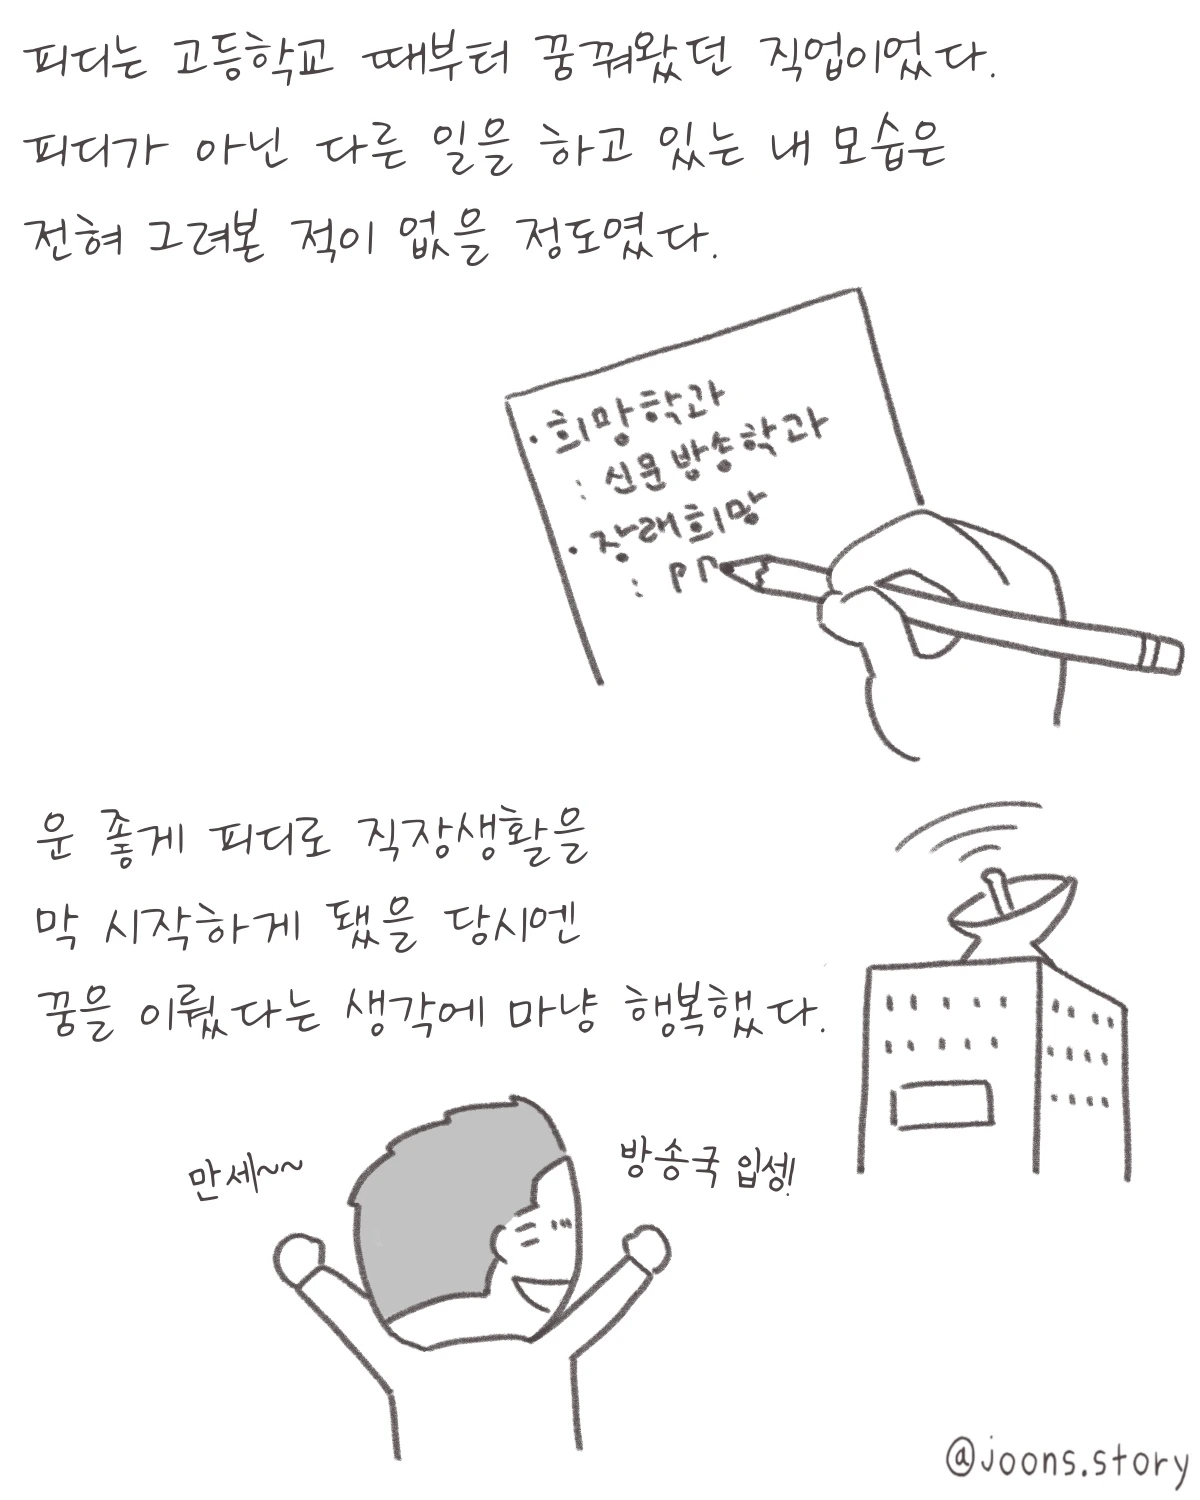 피디는 고등학교 때부터 꿈꿔왔던 직업이었다.
피디가 아닌 다른 일을 하고 있는 내 모습은
전혀 그려본 적이 없을 정도였다.
· 희망학과
: 신문방송학과
· 장래희망
: PD
운 좋게 피디로 직장생활을
막 시작하게 됐을 당시엔
꿈을 이뤘다는 생각에 마냥 행복했다.
만세~~
방송국 입성!
@joons.story